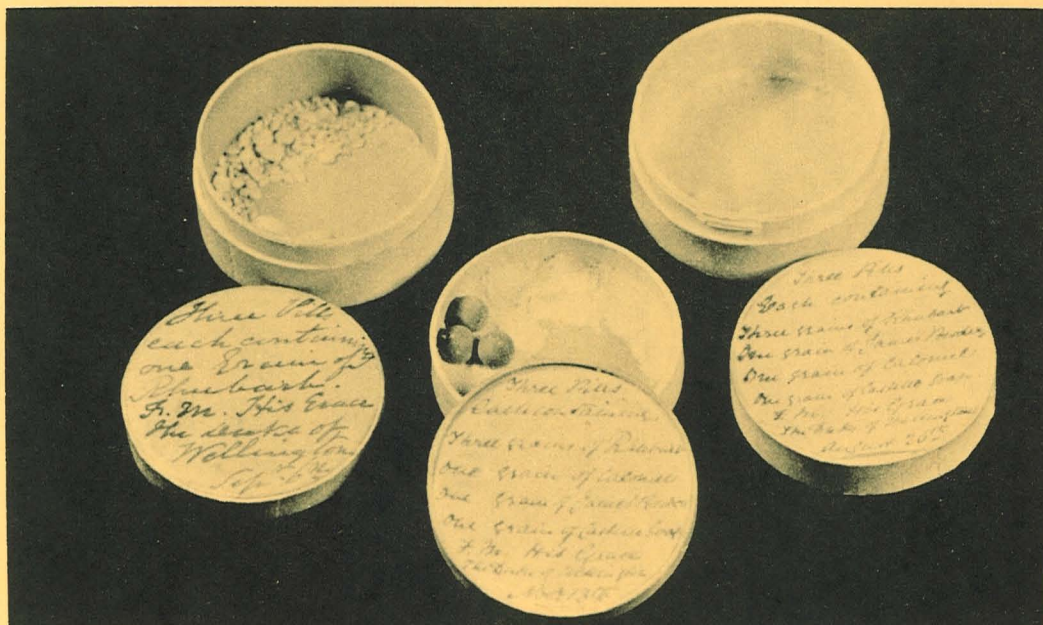 Three Pills
each containing
one Grain of
Rhubarb.
F. M. His Grace
the Duke of
Wellington
Sept 6th
Three Pills
Each containing
Three grains of Rhubarb
One grain of Calomel
One grain of James Powder
One grain of Castile Soap
F. M. His Grace
The Duke of Wellington
Three Pills
Each containing
Three grains of Rhubarb
One grain of James Powder
One grain of Calomel
One grain of Castile Soap
F. M. His Grace
The Duke of Wellington
August 26th